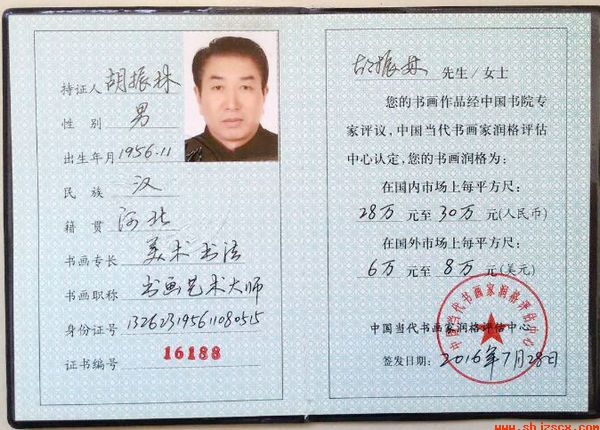 持证人 胡振林
性别 男
出生年月 1956.11
民族 汉
籍贯 河北
书画专长 美术书法
书画职称 书画艺术大师
身份证号 132623195611080515
证书编号 16188
胡振林 先生/女士
您的书画作品经中国书院专
家评议,中国当代书画家润格评估
中心认定,您的书画润格为:
在国内市场上每平方尺:
28万 元至 30万 元(人民币)
在国外市场上每平方尺:
6万 元至 8万 元(美元)
中国当代书画家润格评估中心
中国当代书画家润格评估中心
签发日期: 2016年7月28日
www.shjzscx.com